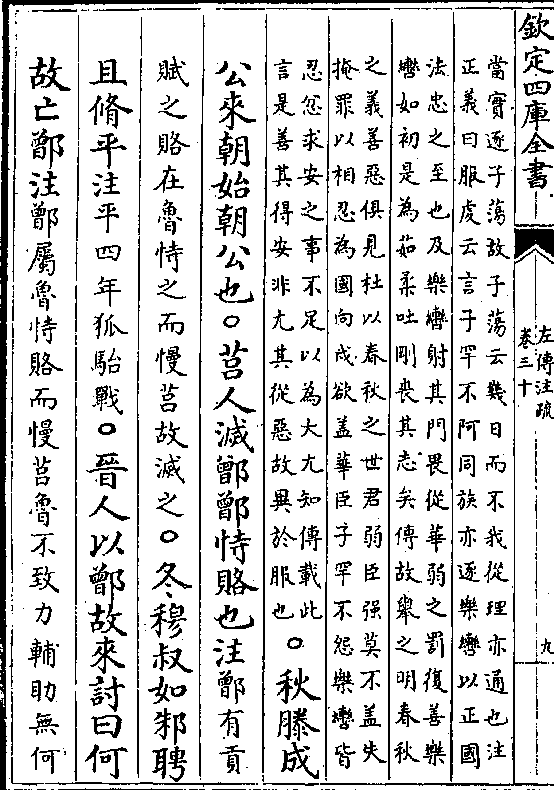 欽定四庫全書
左傳注疏
卷三十
九
當實逐子蕩故子蕩云幾日而不我從理亦通也注
正義曰服虔云言子罕不阿同族亦逐樂轡以正國
法忠之至也及樂轡射其門畏從華弱之罰復善樂
轡如初是為茹柔吐剛喪其志矣傳故舉之明春秋
之義善惡俱見杜以春秋之世君弱臣强莫不盖失
掩罪以相忍為國向戌欲盖華臣子罕不怨樂轡皆
忍忿求安之事不足以為大尤知傳載此
言是善其得安非尤其從惡故異於服也
○秋滕成
公來朝始朝公也○莒人滅鄫鄫恃賂也注鄫有貢
賦之賂在魯恃之而慢莒故滅之○冬穆叔如邾聘
且脩平注平四年狐駘戰○晉人以鄫故來討曰何
故亡鄫注鄫屬魯恃賂而慢莒魯不致力輔助無何